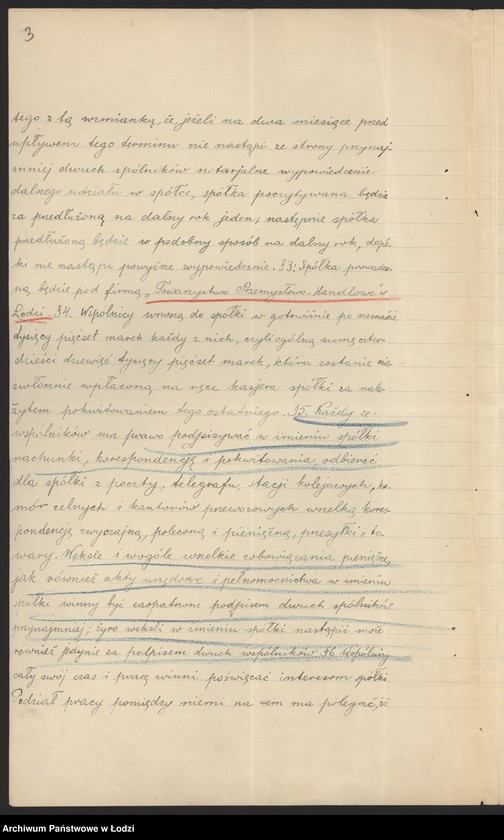 3
tego z tą wzmianką, że jeżeli na dwa miesiące przed
upływem tego terminu nie nastąpi ze strony przynaj-
mniej dwuch spólników notarjalne wypowiedzenie
dalszego udziału w spółce, spółka poczytywana będzie
za przedłużoną na dalszy rok jeden; następnie spółka
przedłużoną będzie w podobny sposób na dalszy rok, dopó-
ki nie nastąpi powyższe wypowiedzenie. §3. Spółka prowadzo-
ną będzie pod firmą „Towarzystwo Przemysłowo-Handlowe" w
Łodzi. §4. Wspólnicy wnoszą do spółki w gotowiźnie po
tysięcy pięćset marek każdy z nich, czyli ogólną sumę czter-
dzieści dziewięć tysięcy pięćset marek, która zostanie nie-
zwłocznie wpłaconą na ręce kasjera spółki za nale-
żytem pokwitowaniem tego ostatniego. §5. Każdy ze
wspólników ma prawo podpisywać w imieniu spółki
rachunki, korespondencję i pokwitowania, odbierać
dla spółki z poczty, telegrafu, stacji kolejowych, ko-
mór celnych i kantorów przewozowych wszelką kores-
pondencję zwyczajną, poleconą i pieniężną, przesyłki i to-
wary. Weksle i wogóle wszelkie zobowiązania pieniężne,
jak również akty urzędowe i pełnomocnictwa w imieniu
spółki winny być zaopatrzone podpisem dwuch spólników
przynajmniej; żyro weksli w imieniu spółki nastąpić może
również jedynie za podpisem dwuch wspólników. §6. Wspólnicy
cały swój czas i pracę winni poświęcać interesom spółki.
Podział pracy pomiędzy niemi na tem ma polegać, iż
Archiwum Państwowe w Łodzi